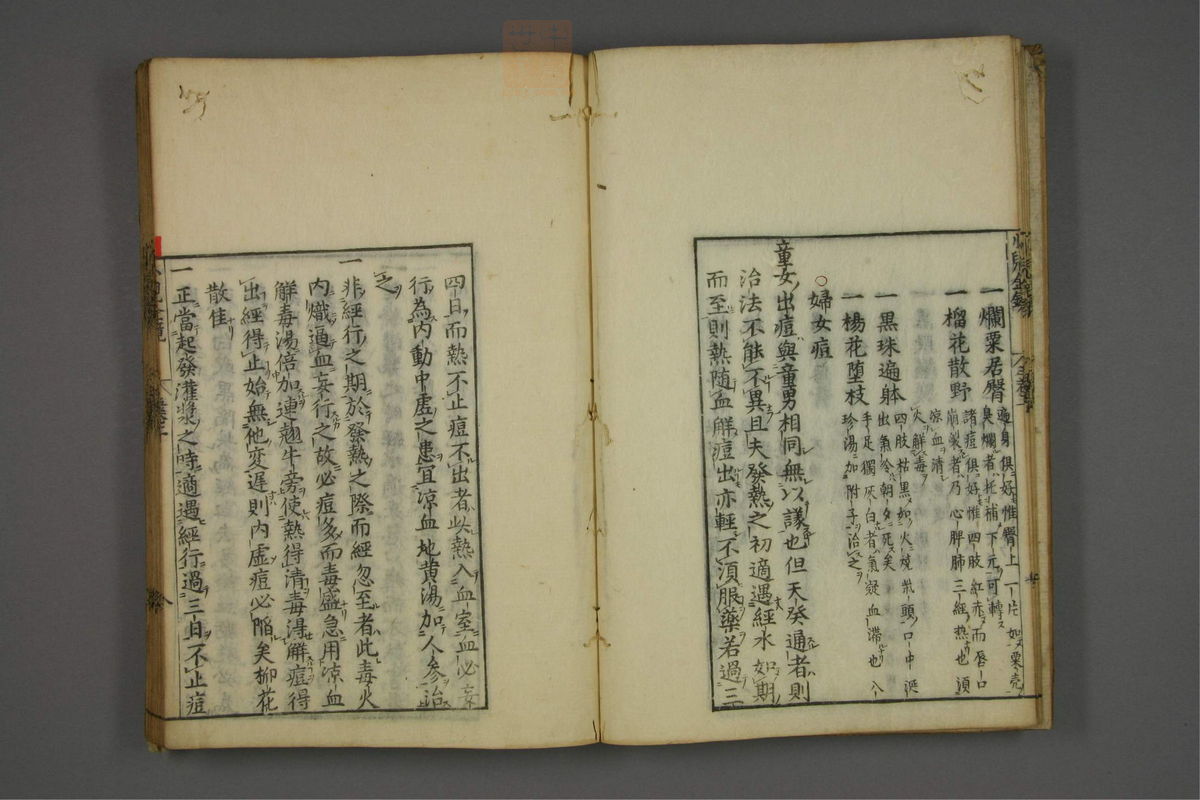 一爛粟居臀
遍身俱好惟臀上一片如粟壳
臭爛者托補下元可轉
一榴花散野
諸痘俱好惟四肢紅赤而唇口
崩裂者乃心脾肺三經热也須
凉血清
火解毒
一黒珠遍躰
四肢枯黒如火燒出頭口中涎
出氣冷朝夕死矣
一楊花墮枝
手足獨灰白者氣凝血滯也入
珍湯加附子治之
○婦女痘
童女出痘與童男相同無以議也但天癸通者則
治法不能不異且夫發熱之初適遇經水如期
而至則熱随血解痘出亦輕不須服藥若過三
四日而熱不止痘不出者此熱入血室血必妄
行為内動中虚之患宜凉血地黄湯加人参治
之
一非經行之期於發熱之際而經忽至者此毒火
内熾逼血妄行之故必痘多而毒盛急用凉血
解毒湯倍加連翹牛旁使熱得清毒淂解痘得
出經得止始無他変遅則内虚痘必陥矣柳花
散佳
一正當起發灌漿之時適遇經行過三日不止痘